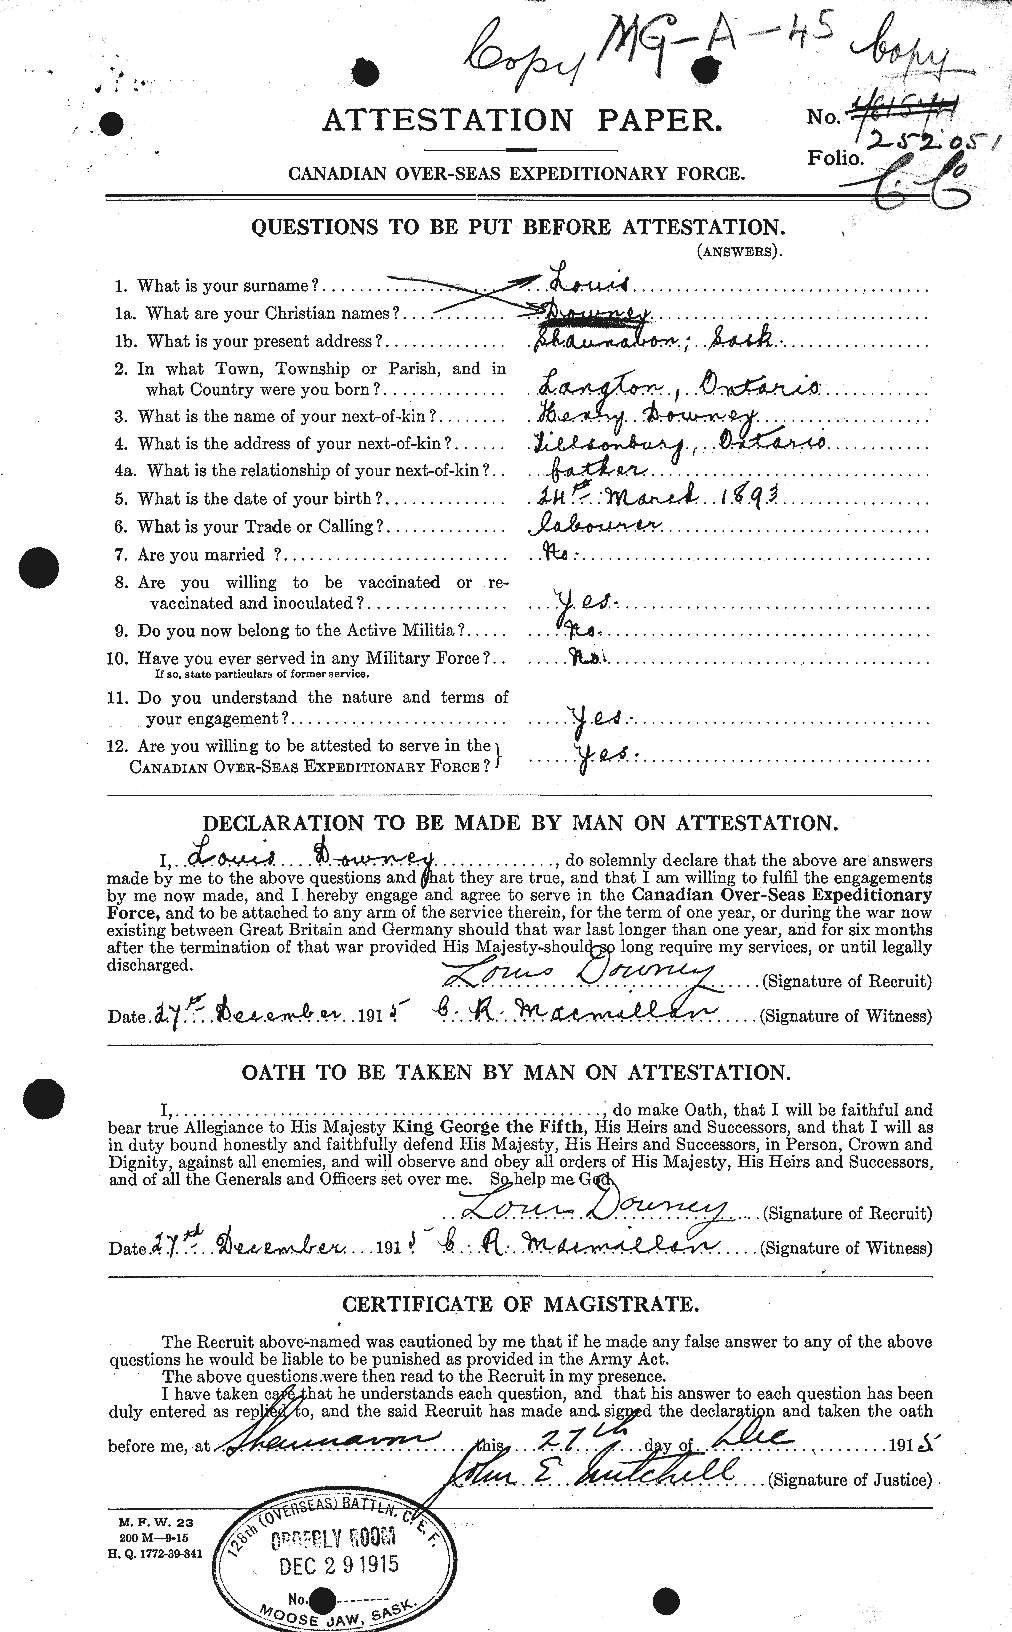 Copy MG-A-45 Copy
ATTESTATION PAPER.
No.
252051
Folio.
CANADIAN OVER-SEAS EXPEDITIONARY FORCE.
QUESTIONS TO BE PUT BEFORE ATTESTATION.
(ANSWERS).
1. What is your surname? Louis
1a. What are your Christian names? Downey
1b. What is your present address? Shaunavon, Sask.
2. In what Town, Township or Parish, and in
what Country were you born? Langton, Ontario
3. What is the name of your next-of-kin? Henry Downey
4. What is the address of your next-of-kin? Tillsonburg, Ontario
4a. What is the relationship of your next-of-kin? father
5. What is the date of your birth? 24th March 1893
6. What is your Trade or Calling? labourer
7. Are you married ? No.
8. Are you willing to be vaccinated or re-
vaccinated and inoculated? Yes.
9. Do you now belong to the Active Militia? No.
10. Have you ever served in any Military Force? No.
If so, state particulars of former service.
11. Do you understand the nature and terms of
your engagement? Yes.
12. Are you willing to be attested to serve in the
CANADIAN OVER-SEAS EXPEDITIONARY FORCE? Yes.
DECLARATION TO BE MADE BY MAN ON ATTESTATION.
I, Louis Downey, do solemnly declare that the above are answers
made by me to the above questions and that they are true, and that I am willing to fulfil the engagements
by me now made, and I hereby engage and agree to serve in the Canadian Over-Seas Expeditionary
Force, and to be attached to any arm of the service therein, for the term of one year, or during the war now
existing between Great Britain and Germany should that war last longer than one year, and for six months
after the termination of that war provided His Majesty should so long require my services, or until legally
discharged.
Louis Downey (Signature of Recruit)
Date 27th December 1915 C. R. Macmillan (Signature of Witness)
OATH TO BE TAKEN BY MAN ON ATTESTATION.
I, , do make Oath, that I will be faithful and
bear true Allegiance to His Majesty King George the Fifth, His Heirs and Successors, and that I will as
in duty bound honestly and faithfully defend His Majesty, His Heirs and Successors, in Person, Crown and
Dignity, against all enemies, and will observe and obey all orders of His Majesty, His Heirs and Successors,
and of all the Generals and Officers set over me. So help me God.
Louis Downey (Signature of Recruit)
Date 27rd December 1915 C. R. Macmillan (Signature of Witness)
CERTIFICATE OF MAGISTRATE.
The Recruit above-named was cautioned by me that if he made any false answer to any of the above
questions he would be liable to be punished as provided in the Army Act.
The above questions were then read to the Recruit in my presence.
I have taken care that he understands each question, and that his answer to each question has been
duly entered as replied to, and the said Recruit has made and signed the declaration and taken the oath
before me, at Shaunavon this 27th day of Dec 1915
John E Mitchell (Signature of Justice)
M. F. W. 23
200 M—9-15
H. Q. 1772-39-841
128th (OVERSEAS) BATTLN. C. E. F.
ORDERLY ROOM
DEC 29 1915
No.
MOOSE JAW, SASK.